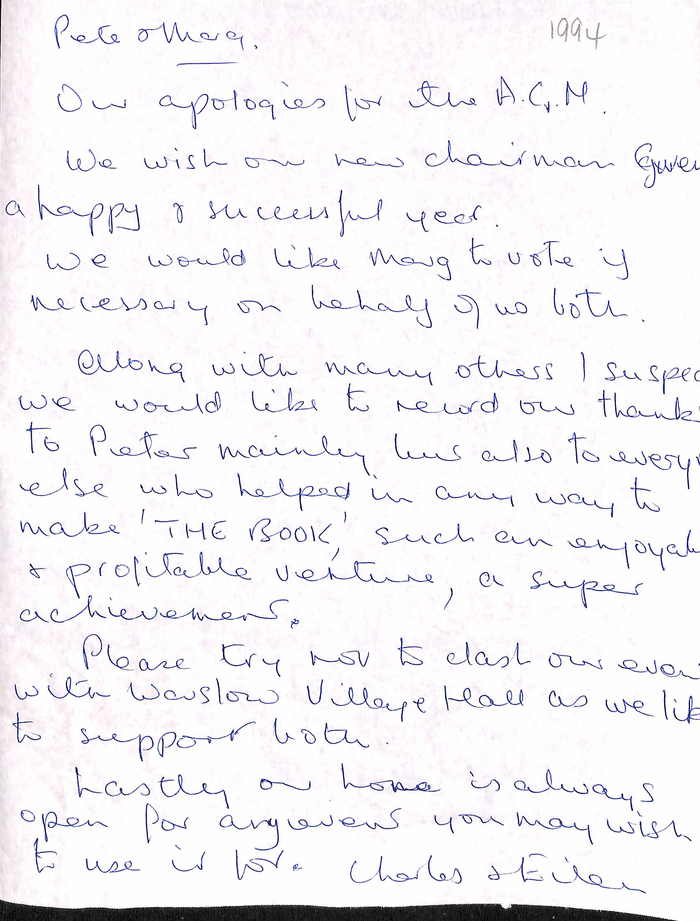 Pete & Marg. 1994
Our apologies for the A.G.M.
We wish our new chairman Gwen
a happy & successful year.
We would like Marg to vote if
necessary on behalf of us both.
Along with many others I suspec
we would like to record our thanks
to Peter mainly but also to every
else who helped in any way to
make 'THE BOOK', such an enjoyab
& profitable venture, a super
achievement.
Please try not to clash our even
with Warslow Village Hall as we lik
to support both.
Lastly our home is always
open for any event you may wish
to use it for. Charles & Eileen